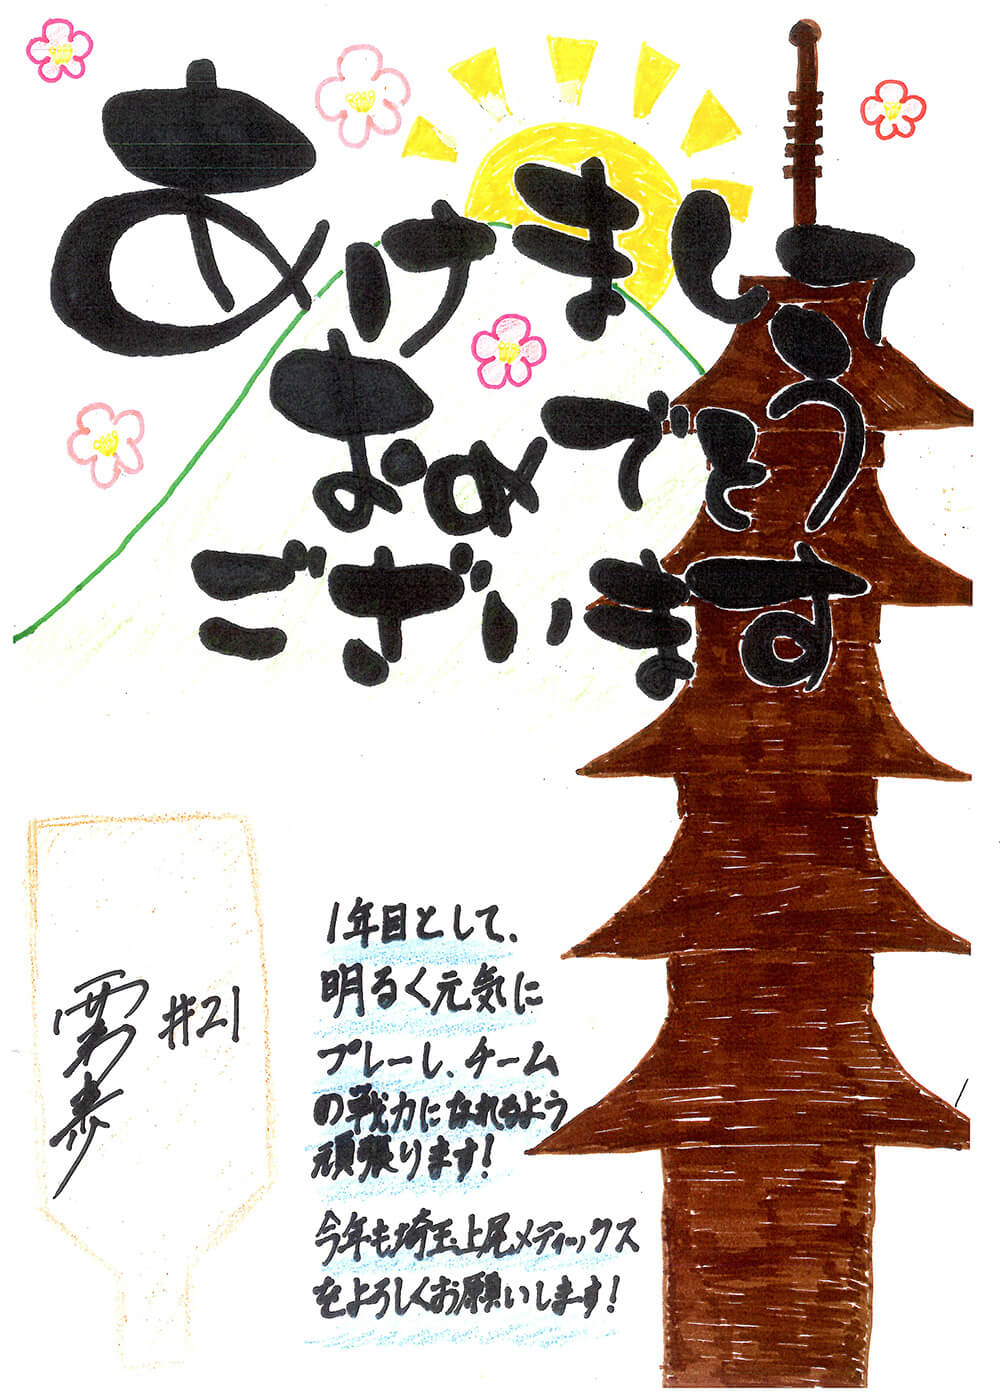 あけまして
おめでとう
ございます
1年目として、
明るく元気に
プレーし、チーム
の戦力になれるよう
頑張ります！
今年も埼玉上尾メディックス
をよろしくお願いします！
#21